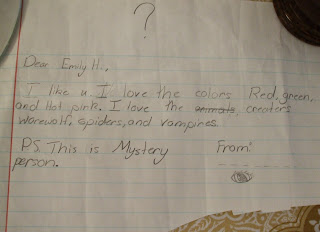 ?
Dear Emily H.,
I like u. I love the colors Red, green,
and Hot pink. I love the creaters
Warewolf, spiders, and vampires
P.S. This is Mystery From:
person.